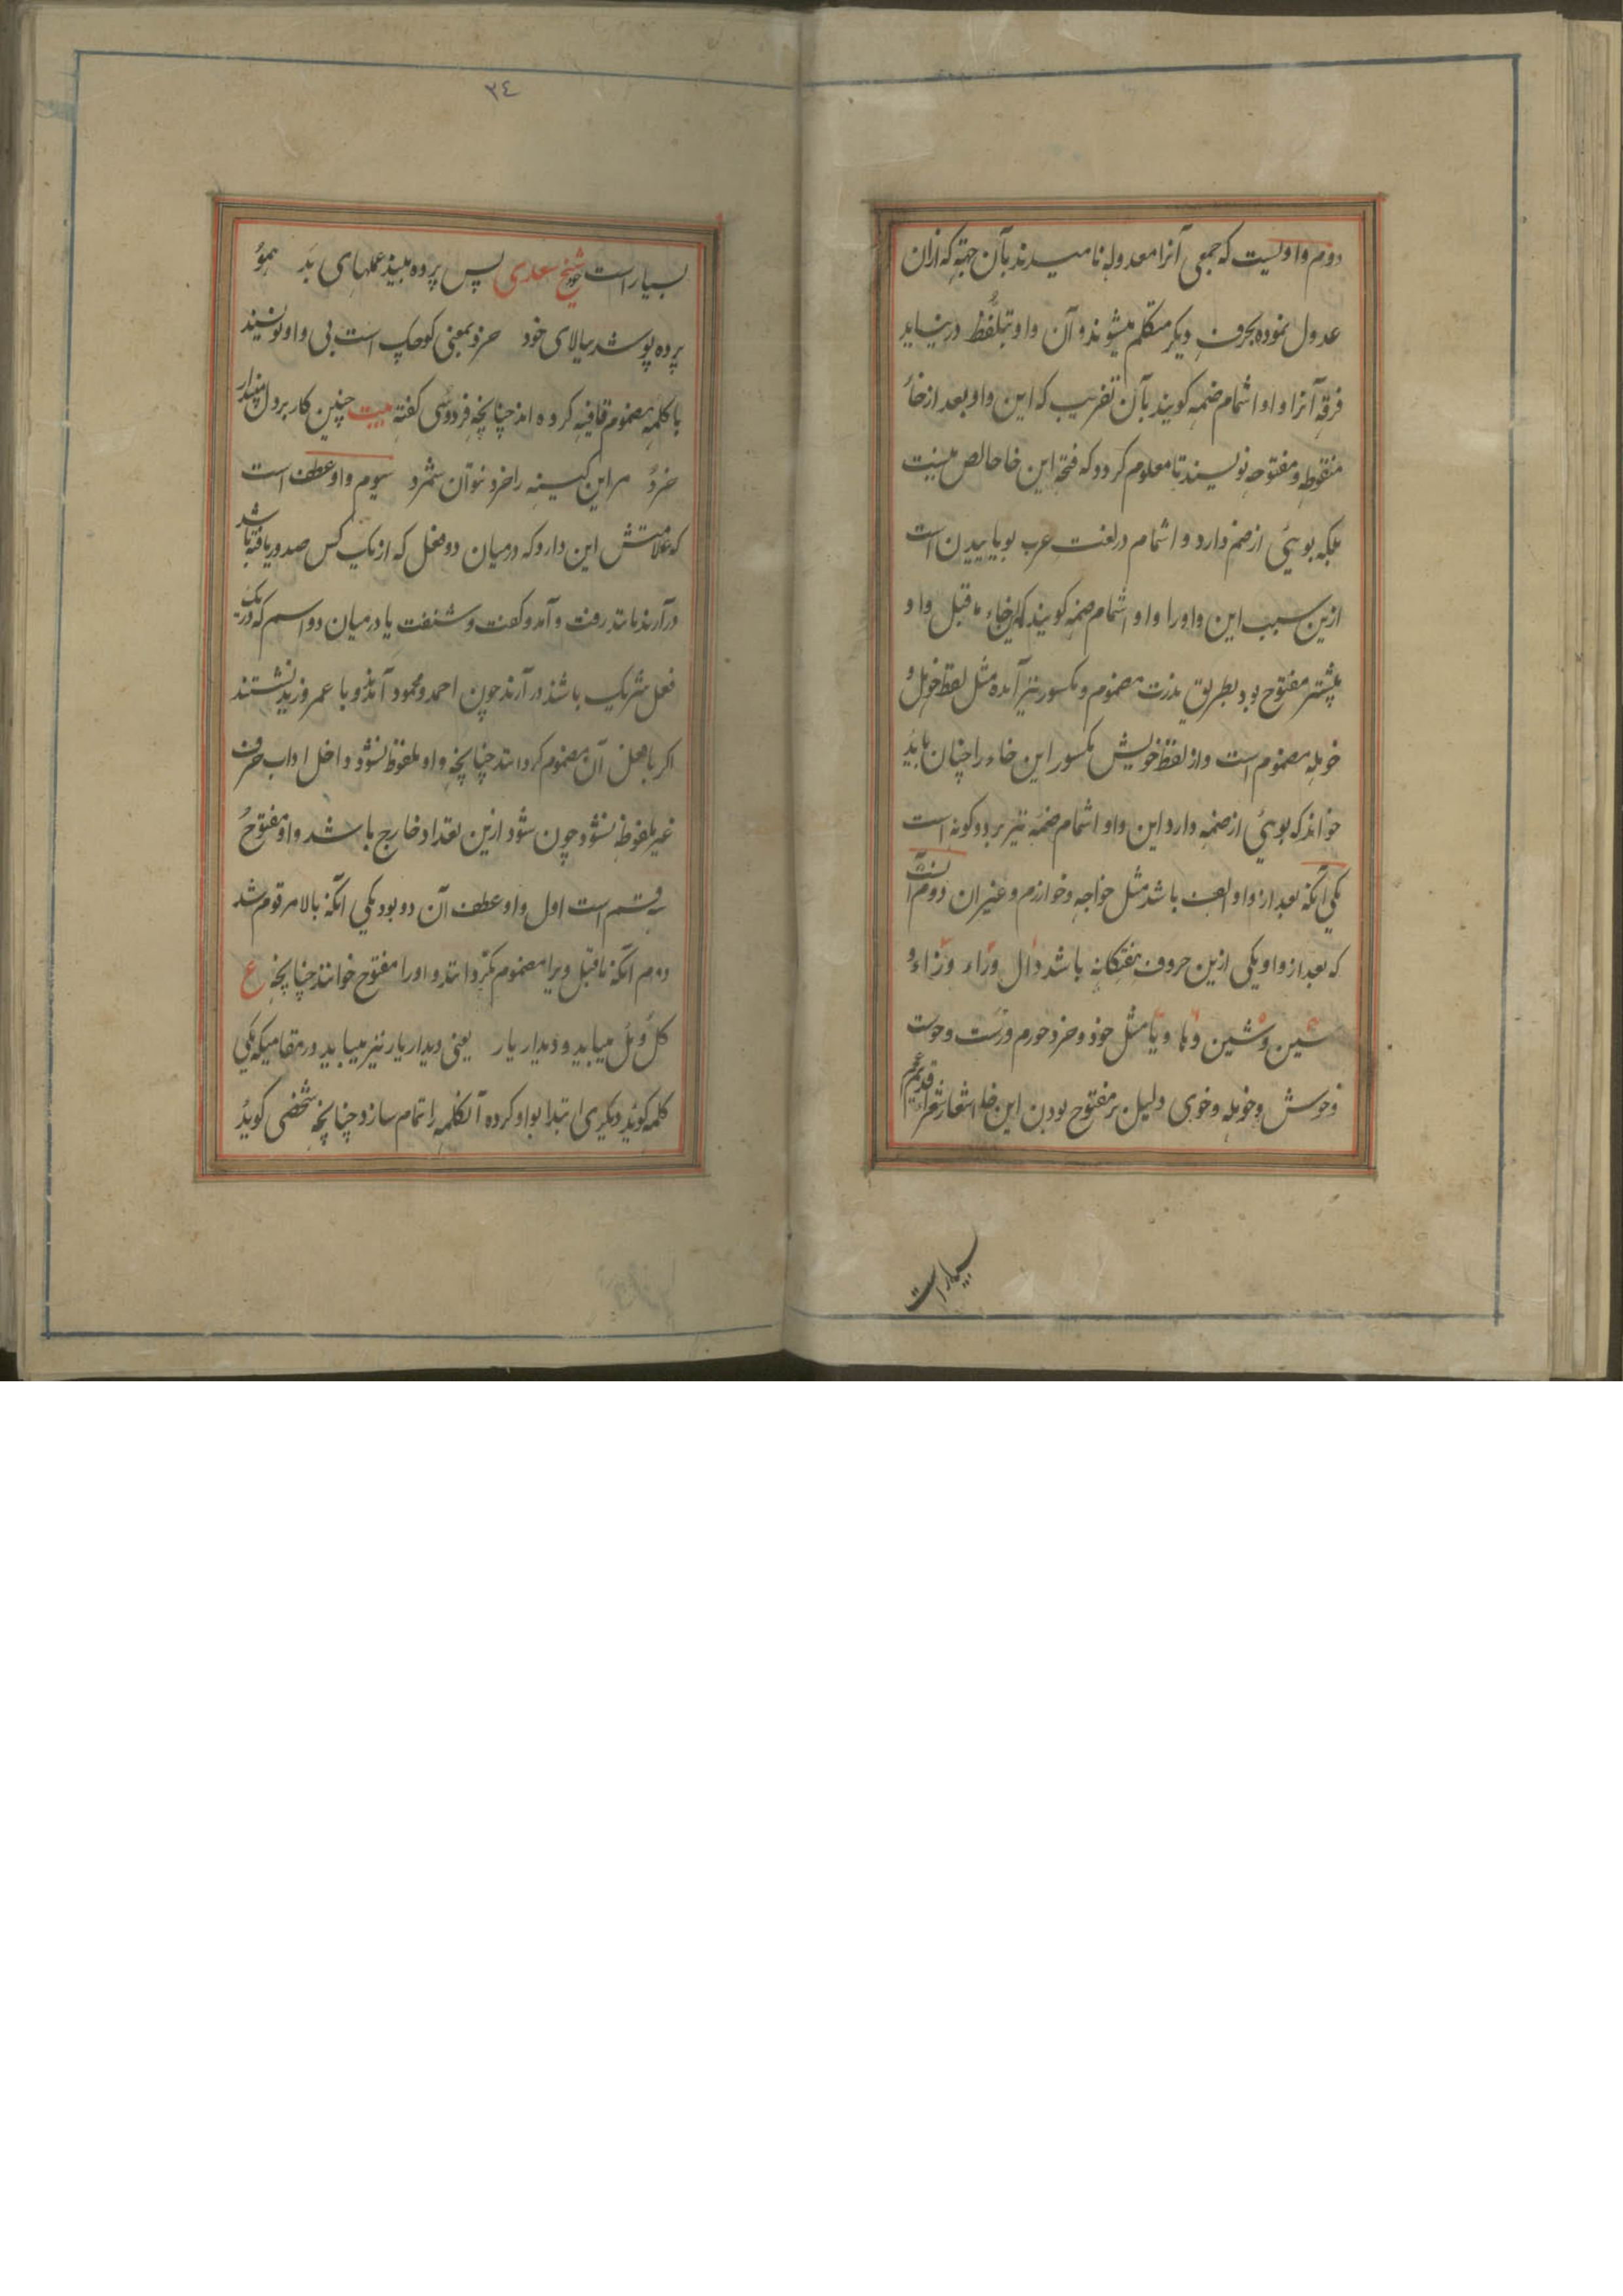 دوم واویست که جمعی آنرا معدوله نامیدند بآن جهة که ازان
عدول نموده بحرف دیکر متکلم میشوند و آن واو بتلفظ درنیاید
فرقه آنرا واو اشمام ضمه کویند بآن تقریب که این واو بعد از خاء
منقوطه و مفتوحه نویسند تا معلوم کردد که فتحه این خا خالص نیست
بلکه بوئی از ضم دارد و اشمام در لغت عرب بویاییدن است
ازین سبب این واو را واو اشمام ضمه کویند که این خاء ماقبل واو
پیشتر مفتوح بود بطریق ندرت مضموم و مکسور نیز آمده مثل لفظ خویل و
خوهله مضموم است و از لفظ خویش مکسور این خاء را چنان باید
خواند که بوئی از ضمه دارد این واو اشمام ضمه نیز بر دو کونه است
یکی آنکه بعد از واو الف باشد مثل خواجه و خوارزم و غیر ان دوم آنست
که بعد از واو یکی ازین حروف هفتکانه باشد دال و راء و زاء و
سین و شین و ها و یا مثل خود و خرد خورم و زست و خوست
و خوش و خوهله و خوی دلیل بر مفتوح بودن این خا اشعار شعراء قدیم عجم
بسیار است
٣٤
بسیار است شیخ سعدی پس پرده بیند عملهای بد همو
پرده پوشد ببالای خود خرد بمعنی کوچک است بی واو نویسند
با کلمه مضموم قافیه کرده اند چنانچه فردوسی کفته بیت چنین کار بر دل مپندار
خرد مر این کینه را خرد نتوان شمرد سیوم واو عطف است
که علامتش این دارد که درمیان دو فعل که از یک کس صدور یافته باشد
درآرند مانند رفت و آمد و کفت و شنفت یا درمیان دو اسم که در یک
فعل شریک باشند درآرند چون احمد و محمود آمدند و یا عمر و زید نشستند
اکر ماقبل آن مضموم کردانند چنانچه واو ملفوظ نشود داخل اداب حروف
غیر ملفوظه نشود چون شود ازین تعداد خارج باشد واو مفتوح
قسم است اول واو عطف آن دو بود یکی آنکه بالا مرقوم شد
دوم آنکه ماقبل ویرا مضموم نکردانند و او را مفتوح خوانند چنانچه ع
کل و مل میباید و دیدار یار یعنی دیدار یار نیز میباید در مقامیکه یکی
کلمه کوید دیکری ابتدا بواو کرده آنکلمه را تمام سازد چنانچه شخصی کوید